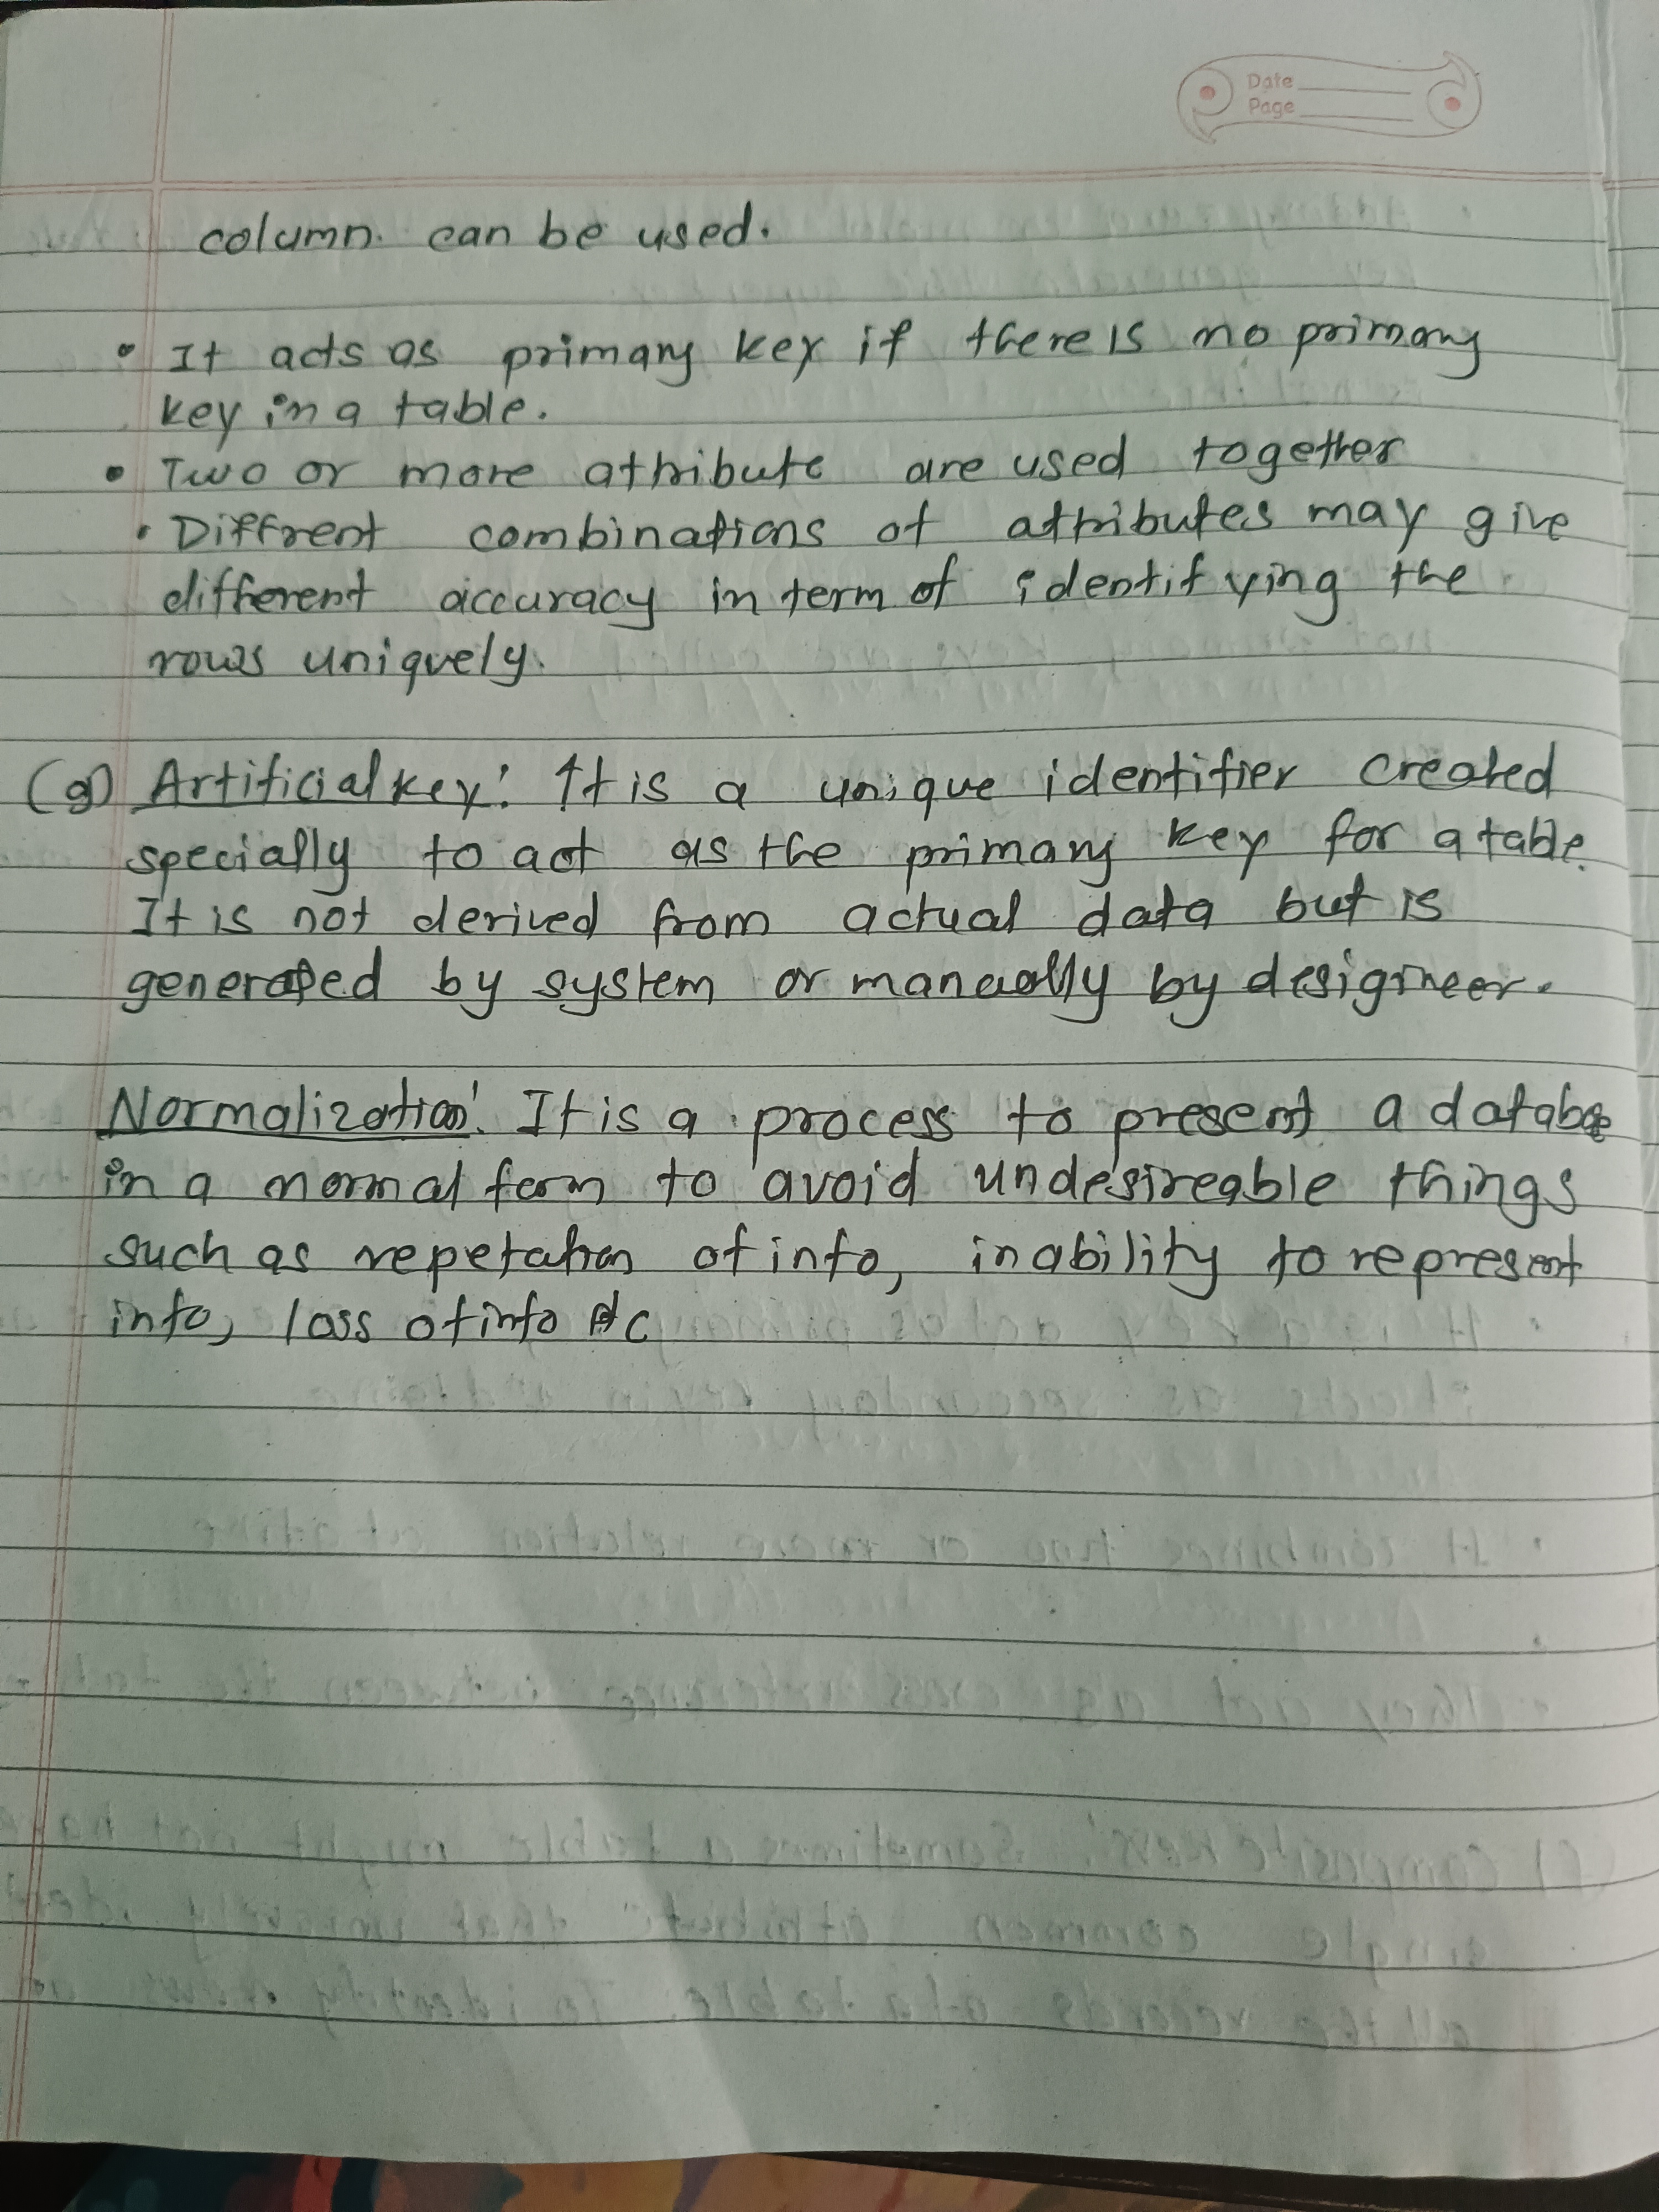 Date
Page
column. can be used.
• It acts as primary key if there is no primary
key in a table.
• Two or more attribute are used together
• Diffrent combinations of attributes may give
different accuracy in term of identifying the
rows uniquely.
(g) Artificial key: It is a unique identifier created
specially to act as the primary key for a table.
It is not derived from actual data but is
generated by system or manually by desigineer.
Normalization: It is a process to present a database
in a normal form to avoid undesireable things
such as repetation of info, inability to represent
info, loss of info etc